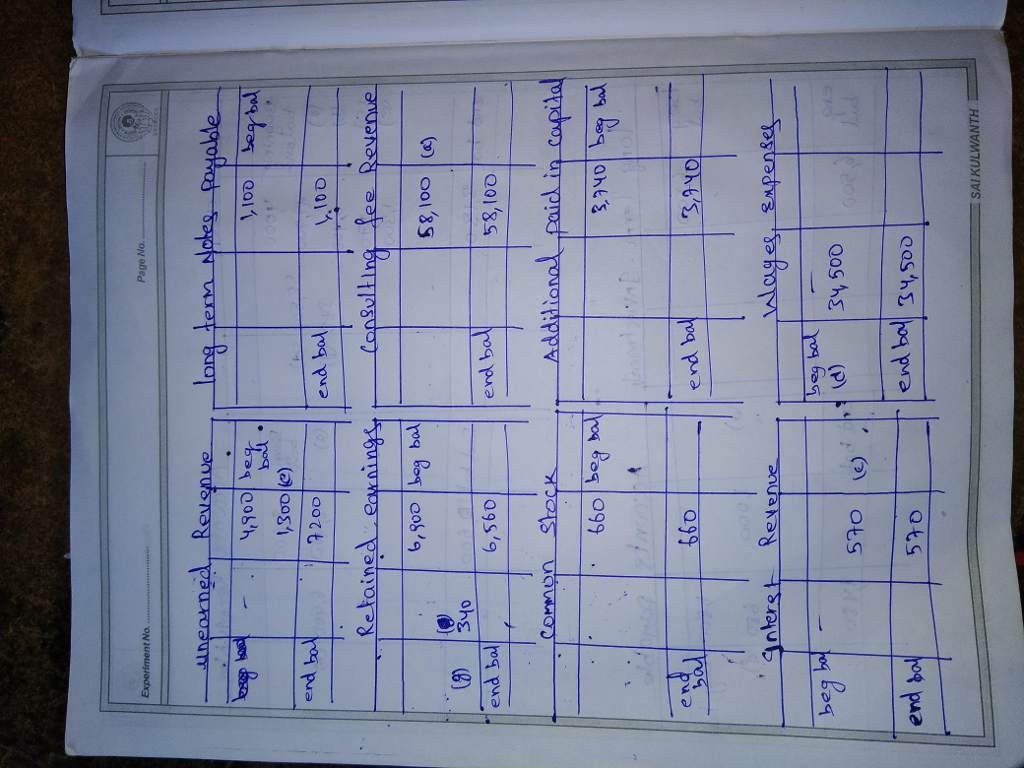 Experiment No.
Page No.
Unearned Revenue
Long term Notes payable
4,900 beg bal
1,300 (e)
end bal 7200
1,100 beg bal
end bal 1,100
Retained earnings
Consulting fee Revenue
6,900 beg bal
(g) 340
end bal 6,560
58,100 (a)
end bal 58,100
Common Stock
Additional paid in capital
660 beg bal
end bal 660
3,740 beg bal
end bal 3,740
Interest Revenue
Wages expenses
beg bal –
570 (c)
end bal 570
beg bal –
(d) 34,500
end bal 34,500
SAI KULWANTH